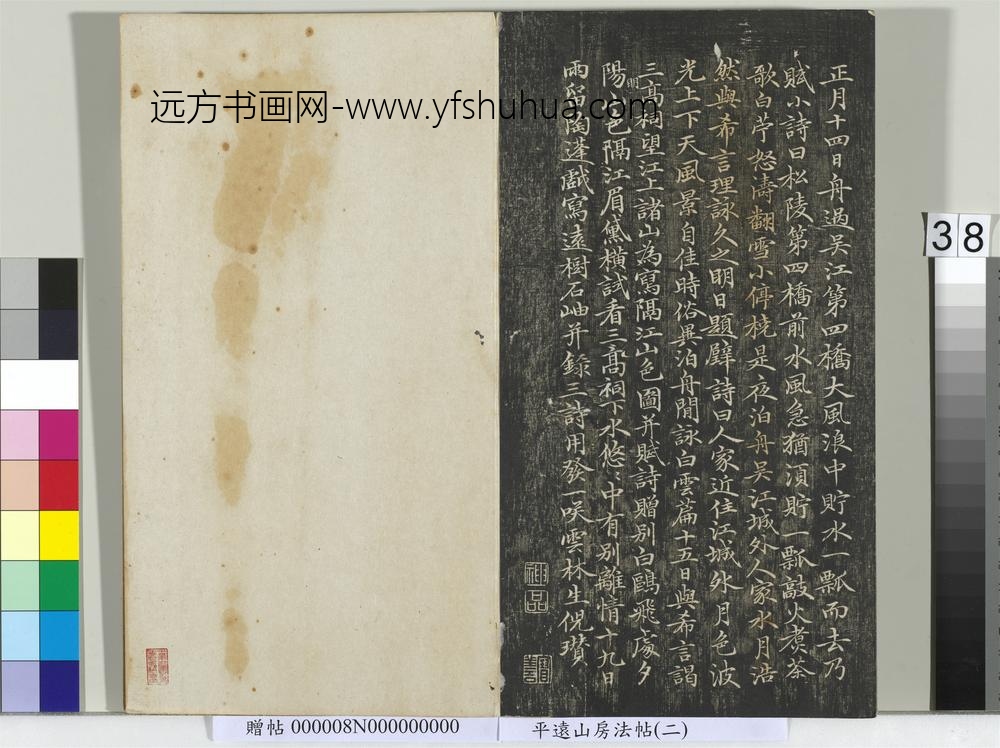 正月十四日舟過吴江第四橋大風浪中貯水一瓢而去乃
賦小詩曰松陵第四橋前水風急猶須貯一瓢敲火煑茶
歌白苧怒濤翻雪小停橈是夜泊舟吴江城外人家水月浩
然與希言理詠久之明日題壁詩曰人家近住江城外月色波
光上下天風景自佳時俗異泊舟閒詠白雲篇十五日與希言謁
三髙祠望江上諸山為寫隔江山色圖并賦詩贈别白鷗飛處夕
陽明山色隔江眉黛横試看三髙祠下水悠〻中有别離情十九日
雨窗蓬戲寫遠樹石岫并錄三詩用發一咲雲林生倪瓚
神品
远方书画网-www.yfshuhua.com
38
贈帖 000008N000000000
平遠山房法帖(二)